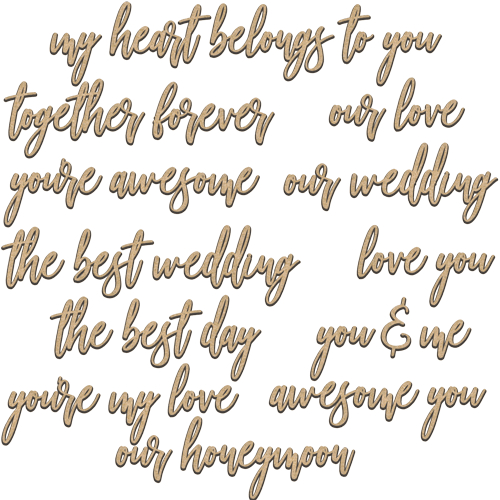 my heart belongs to you
together forever our love
you're awesome our wedding
the best wedding love you
the best day you & me
you're my love awesome you
our honeymoon